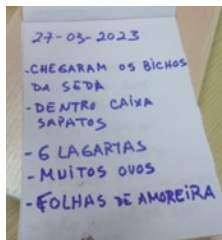 27-03-2023
-CHEGARAM OS BICHOS
DA SEDA
-DENTRO CAIXA
SAPATOS
-6 LAGARTAS
-MUITOS OVOS
-FOLHAS DE AMOREIRA